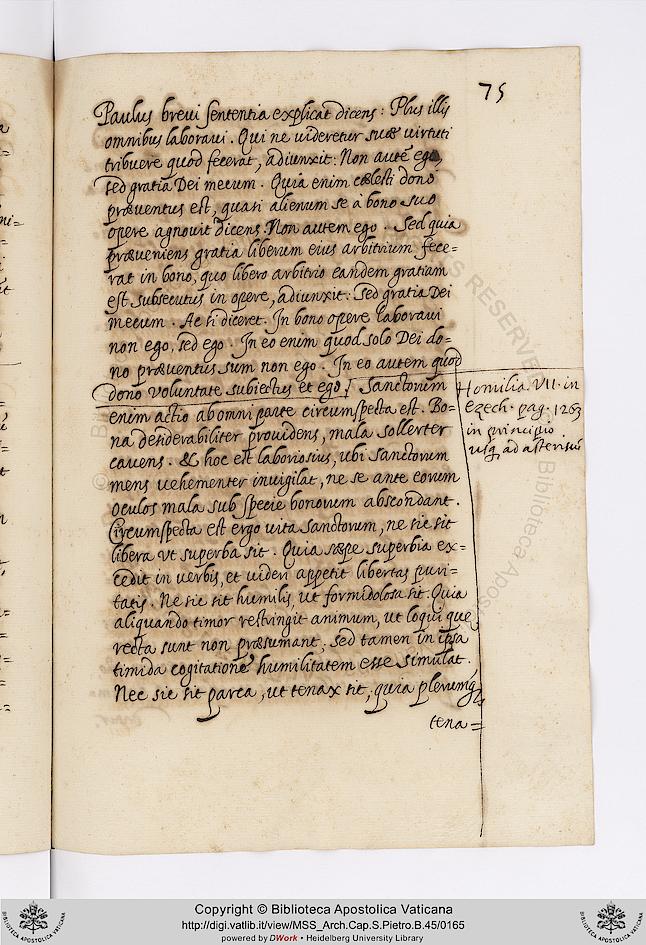 75
Paulus breui sententia explicat dicens: Plus illis
omnibus laboraui. Qui ne uideretur suæ uirtuti
tribuere quod fecerat, adiunxit: Non autē ego,
sed gratia Dei mecum. Quia enim cælesti dono
præuentus est, quasi alienum se à bono suo
opere agnouit dicens: Non autem ego. Sed quia
præueniens gratia liberum eius arbitrium fece=
rat in bono, quo libero arbitrio eandem gratiam
est subsecutus in opere, adiunxit: Sed gratia Dei
mecum. Ac si diceret. In bono opere laboraui
non ego, sed ego. In eo enim quod solo Dei do=
no præuentus sum non ego. In eo autem quod
dono voluntate subiectus et ego. Sanctorum
enim actio ab omni parte circumspecta est. Bo=
na desiderabiliter prouidens, mala sollerter
cauens. & hoc est laboriosius, vbi sanctorum
mens uehementer inuigilat, ne se ante eorum
oculos mala sub specie bonorum abscondant.
Circumspecta est ergo vita sanctorum, ne sic sit
libera vt superba sit. Quia sæpe superbia ex=
cedit in uerbis, et uideri appetit libertas puri=
tatis. Ne sic sit humilis, ut formidolosa sit. Quia
aliquando timor restringit animum, ut loqui que
recta sunt non præsumant, sed tamen in ipsa
timida cogitatione humilitatem esse simulat.
Nec sic sit parca, ut tenax sit, quia plerumq;
tena=
Homilia. VII. in
Ezech. pag. 1263
in principio
usq; ad asteriscū
Copyright © Biblioteca Apostolica Vaticana
http://digi.vatlib.it/view/MSS_Arch.Cap.S.Pietro.B.45/0165
powered by DWork • Heidelberg University Library